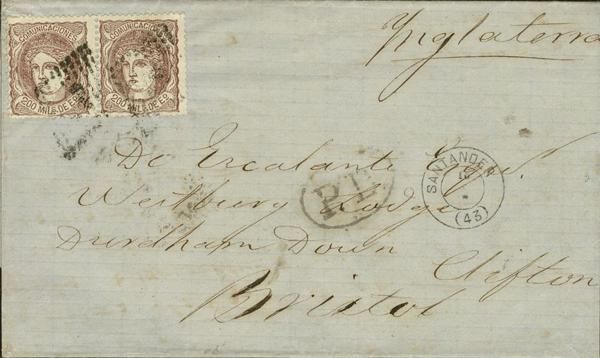 COMUNICACIONES COMUNICACIONES
200 MILS. DE ES. 200 MILS. DE ES.
Inglaterra
De Escalante Esqr.
Westbury Lodge
Durdham Down
Clifton
Bristol
P.D.
SANTANDER
(43)